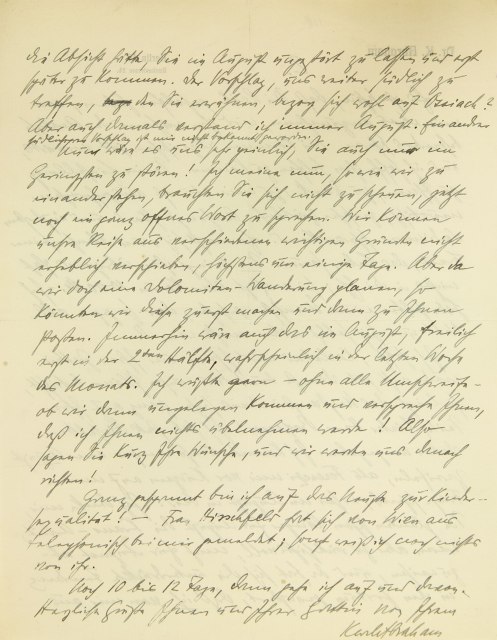 die Absicht hätte, Sie im August ungestört zu lassen und erst
später zu kommen. Der Vorschlag, uns weiter südlich zu
treffen, den Sie erwähnen, bezog sich wohl auf Ossiach?
Aber auch damals verstand ich immer August. Ein anderer
südlicherer Vorschlag ist mir nicht bekannt geworden.
Nun wäre es uns sehr peinlich, Sie auch nur im
Geringsten zu stören! Ich meine nun, so wie wir zu
einander stehen, brauchen Sie sich nicht zu scheuen, jetzt
noch ein ganz offnes Wort zu sprechen. Wir können
unsre Reise aus verschiedenen wichtigen Gründen nicht
erheblich verschieben, höchstens um einige Tage. Aber da
wir doch eine Dolomiten-Wanderung planen, so
könnten wir diese zuerst machen und dann zu Ihnen
stoßen. Immerhin wäre auch das im August, freilich
erst in der 2ten Hälfte, wahrscheinlich in der letzten Woche
des Monats. Ich wüßte gern – ohne alle Umschweife –
ob wir dann ungelegen kommen und verspreche Ihnen,
daß ich Ihnen nichts übelnehmen werde! Also
sagen Sie kurz Ihre Wünsche, und wir werden uns danach
richten!
Ganz gespannt bin ich auf das Neuste zur Kinder-
sexualität! – Frau Hirschfeld hat sich von Wien aus
telephonisch bei mir gemeldet; sonst weiß ich noch nichts
von ihr.
Noch 10 bis 12 Tage, dann gehe ich auf und davon.
Herzliche Grüße Ihnen und Ihrer Gattin von Ihrem
Karl Abraham